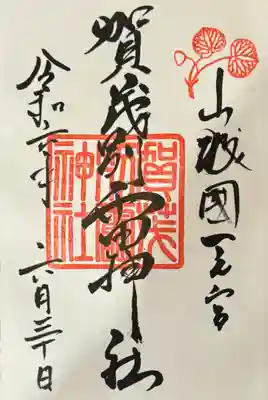 山城國一之宮
賀茂別雷神社
令和年 六月三十日
賀茂
別雷
神社